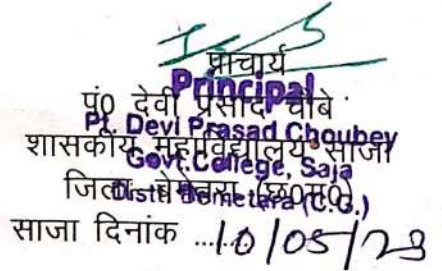 प्राचार्य
Principal
पं0 देवी प्रसाद चौबे
Pt. Devi Prasad Choubey
शासकीय महाविद्यालय साजा
Govt.College, Saja
जिला बेमेतरा (छ0ग0)
Distt. Bemetara (C.G.)
साजा दिनांक ......10/05/23